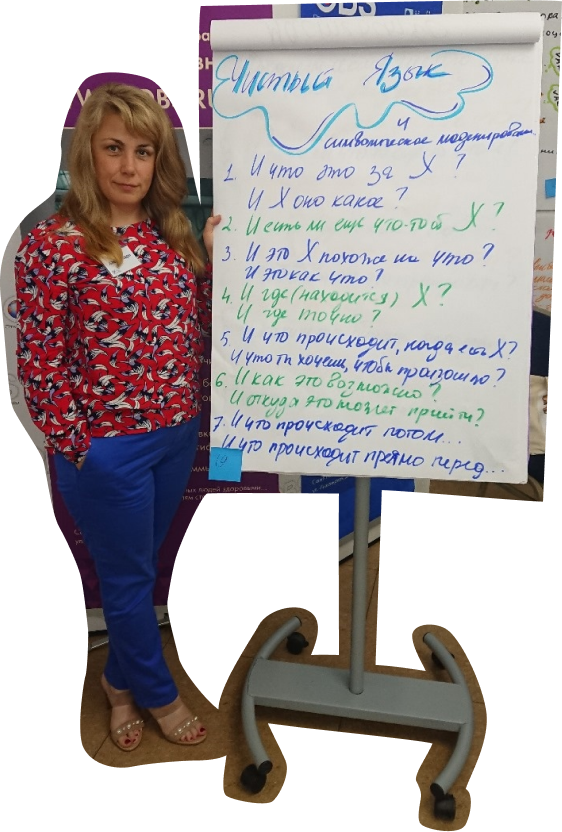 Чистый Язык
и
символическое моделирование.
1. И что это за X ?
И X оно какое ?
2. И есть ли ещё что-то об X ?
3. И это X похоже на что ?
И это как что ?
4. И где (находится) X ?
И где точно ?
5. И что происходит, когда есть X ?
И что ты хочешь, чтобы произошло ?
6. И как это возможно ?
И откуда это может прийти ?
7. И что происходит потом...
И что происходит прямо перед...
19